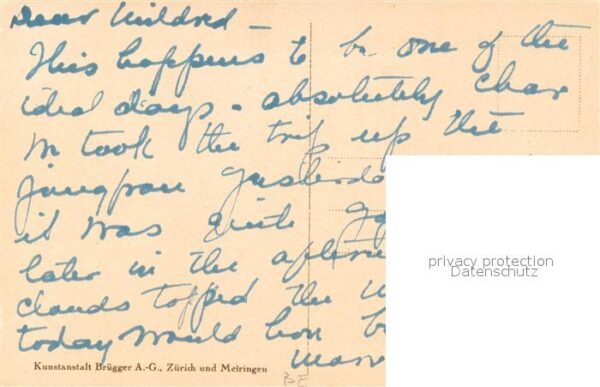 Dear Mildred -
This happens to be one of the
ideal days - absolutely clear
We took the trip up the
Jungfrau yesterday
it was quite
later in the afternoon
clouds topped the
today would have been
Kunstanstalt Brügger A.-G., Zürich und Meiringen
privacy protection
Datenschutz